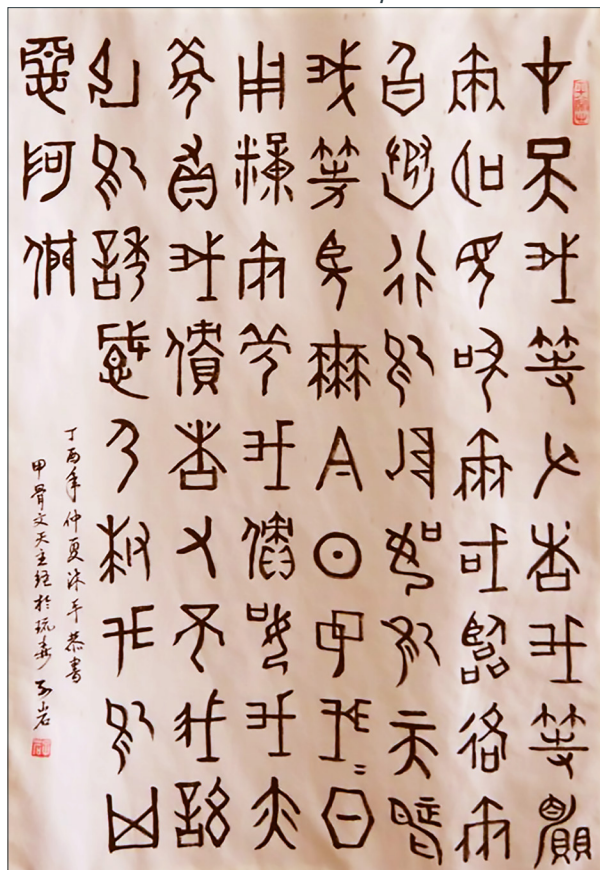 在天我等父者我等願
爾名見聖爾國臨格爾
旨承行於地如於天焉
我等望爾今日與我=日
用糧爾免我債如我亦
免負我債者又不我許
陷於誘感乃救我於凶
惡阿們
丁酉年仲夏沐手恭書
甲骨文天主经於